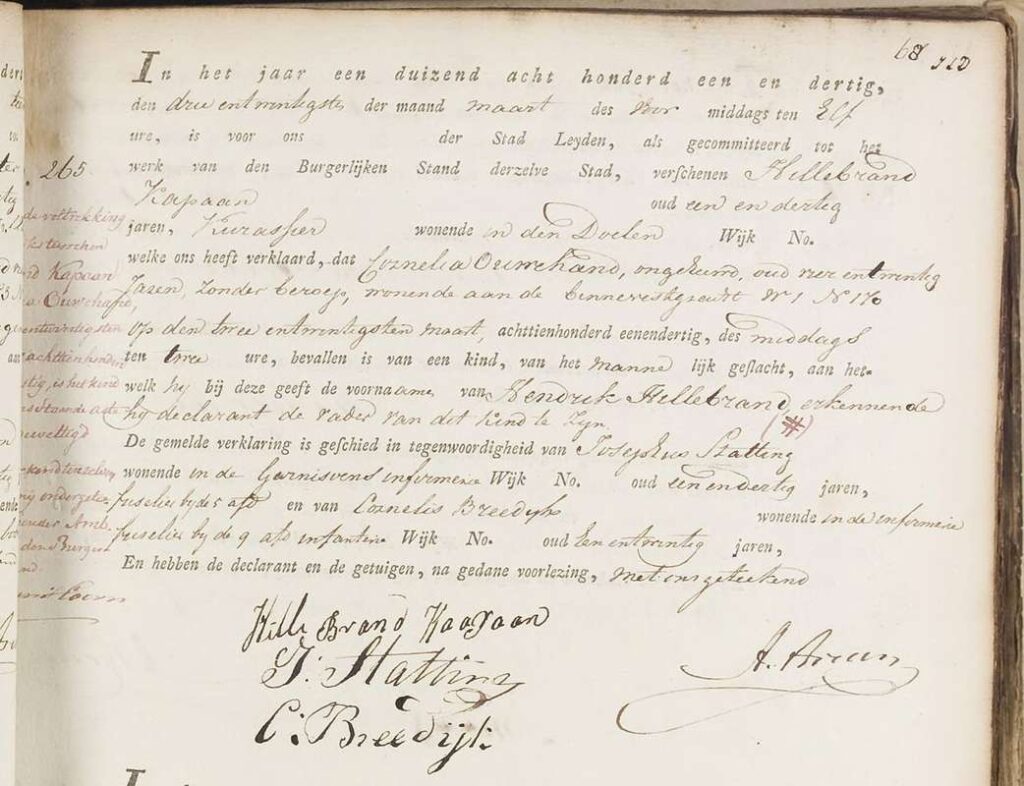 68
In het jaar een duizend acht honderd een en dertig,
den drie entwintigste der maand maart des voor middags ten Elf
ure, is voor ons der Stad Leyden, als gecommitteerd tot het
265. werk van den Burgerlijken Stand derzelve Stad, verschenen Hillebrand
Kapaan oud een en dertig
jaren, Kurassier wonende in den Doelen Wijk No.
welke ons heeft verklaard, dat Cornelia Ouwehand, ongehuwd, oud vier entwintig
Jaren, zonder beroep, wonende aan de binnevestgracht W 1 N 170
op den twee entwintigsten maart, achttienhonderd eenendertig, des middags
ten twee ure, bevallen is van een kind, van het manne lijk geslacht, aan het-
welk hij bij deze geeft de voornaame van Hendrik Hillebrand, erkennende
hij declarant de vader van dit kind te zijn (#)
De gemelde verklaring is geschied in tegenwoordigheid van Josephus Statting
wonende in de Garnisoens infermerie Wijk No. oud eenendertig jaren,
fuselier bij de 5 afd en van Cornelis Breedijk wonende in de infermerie
fuselier bij de 9 afd infanterie Wijk No. oud een entwintig jaren,
En hebben de declarant en de getuigen, na gedane voorlezing, met ons geteekend
de voltrekking
Kapaan
Ouwehand,
achttienhonderd
is het kind
staande acte
gewettigd
Burgerl
Hille Brand Kaapaan
J: Statting
C: Breedijk